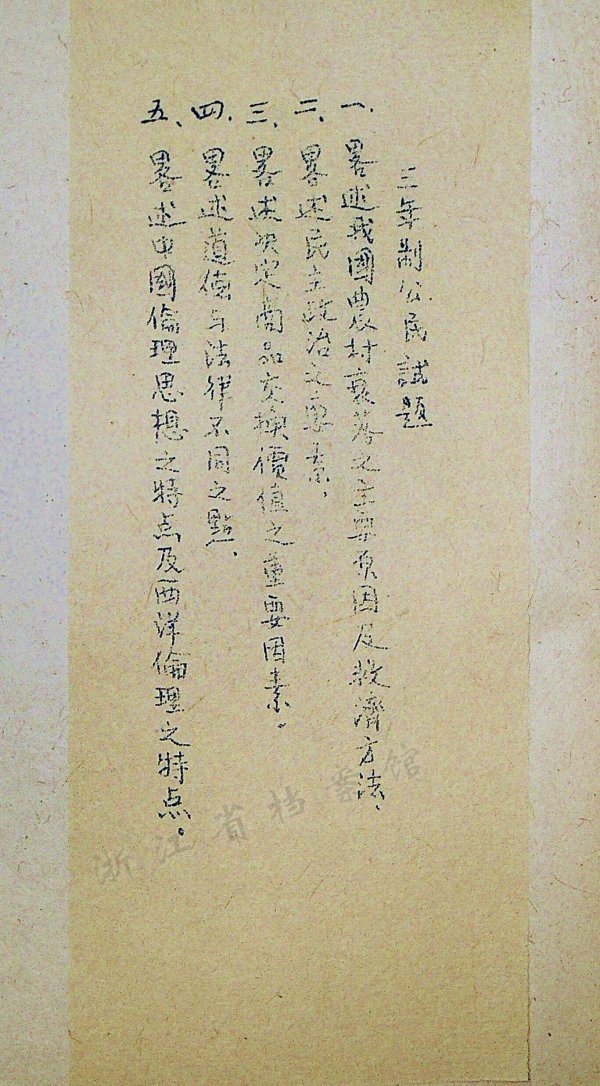 三年制公民試題
一、畧述我國農村衰落之主要原因及救濟方法、
二、畧述民主政治之要素、
三、畧述決定商品交換價值之重要因素。
四、畧述道德与法律不同之點、
五、畧述中國倫理思想之特点及西洋倫理之特点。
浙江省档案馆